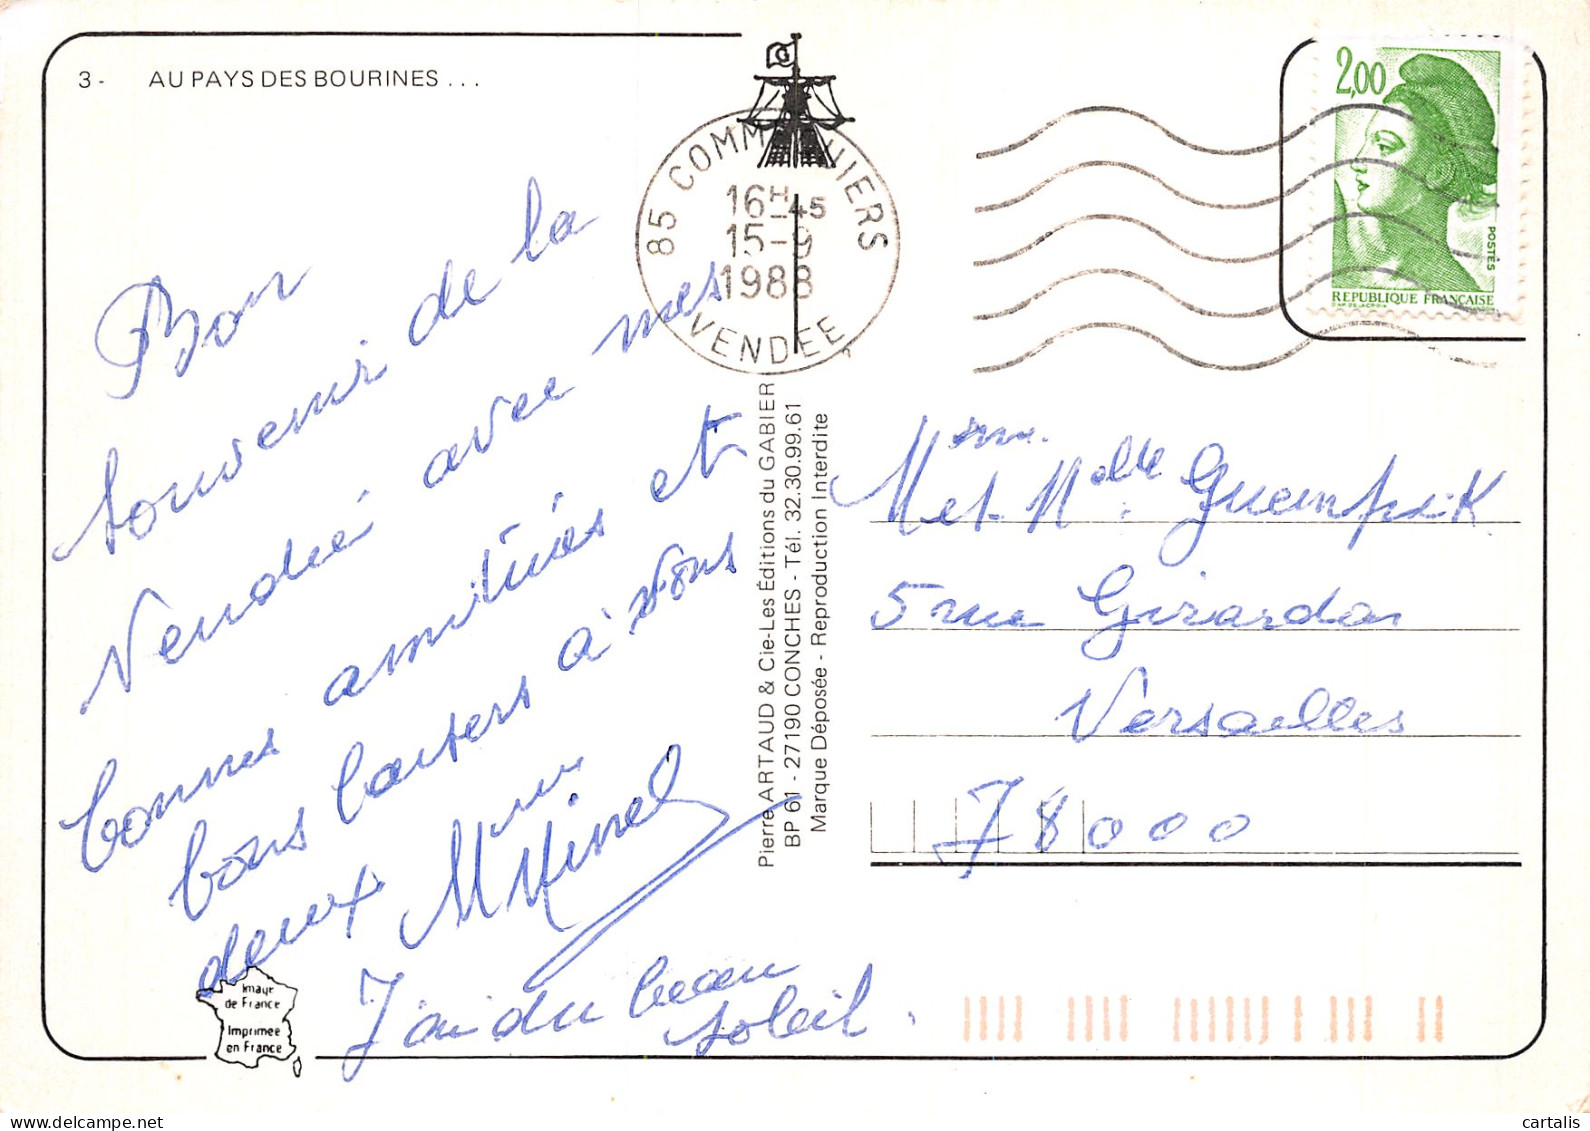 3 - AU PAYS DES BOURINES ...
Bon
souvenir de la
Vendée avec mes
bonnes amitiés et
bons baisers à vous
deux Mme Minel
J'ai du beau
soleil.
Image
de France
Imprimée
en France
85 COMM HIERS
16H-45
15-9
1988
VENDEE
Pierre ARTAUD & Cie-Les Éditions du GABIER
BP 61 - 27190 CONCHES - Tél. 32.30.99.61
Marque Déposée - Reproduction Interdite
2,00
POSTES
REPUBLIQUE FRANÇAISE
Mme et Melle
5 rue Girardon
Versailles
78000
cartalis